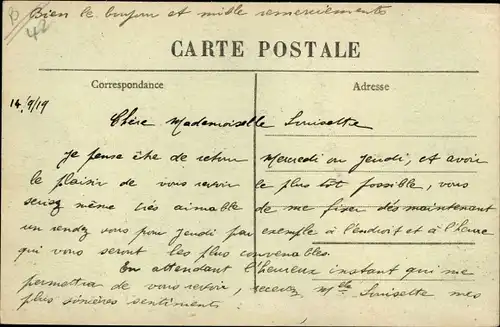 Bien le bonjour et mille remerciements
42
CARTE POSTALE
Correspondance
Adresse
14/9/19
Chère Mademoiselle Louisette
Je pense être de retour Mercredi ou Jeudi, et avoir
le plaisir de vous revoir le plus tôt possible, vous
seriez même très aimable de me fixer dès maintenant
un rendez vous pour Jeudi par exemple à l'endroit et à l'heure
qui vous seront les plus convenables.
En attendant l'heureux instant qui me
permettra de vous revoir, recevez Mlle Louisette mes
plus sincères sentiments.